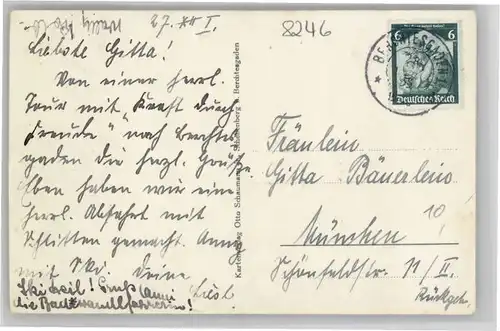 27. XII I.
8246
Liebste Gitta!
Von einer herrl.
Tour mit "Kraft durch
Freude" nach Berchtes
gaden die herzl. Grüße
Eben haben wir eine
herrl. Abfahrt mit
Schlitten gemacht. Anny
mit Ski. Deine
Liesl.
Ski heil! Gruß Anni
die
Kartenverlag Otto Schellenberg Berchtesgaden
6 6
Deutsches Reich
BERCHTESGADEN
Fräulein
Gitta Bäuerlein
München
Schönfeldstr. 11/II.
Rückgeb.
10!